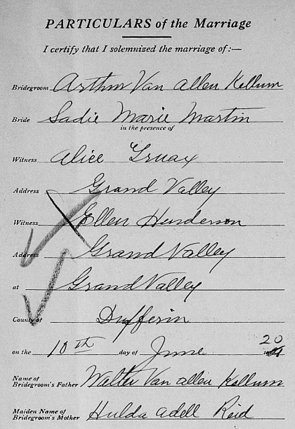 PARTICULARS of the Marriage
I certify that I solemnized the marriage of:—
Bridegroom Arthur Van allen Kellum
Bride Sadie Marie Martin
in the presence of
Witness Alice Truax
Address Grand Valley
Witness Ellen Henderson
Address Grand Valley
at Grand Valley
County of Dufferin
on the 10th day of June 20
Name of
Bridegroom's Father Walter Van allen Kellum
Maiden Name of
Bridegroom's Mother Hulda adell Reid